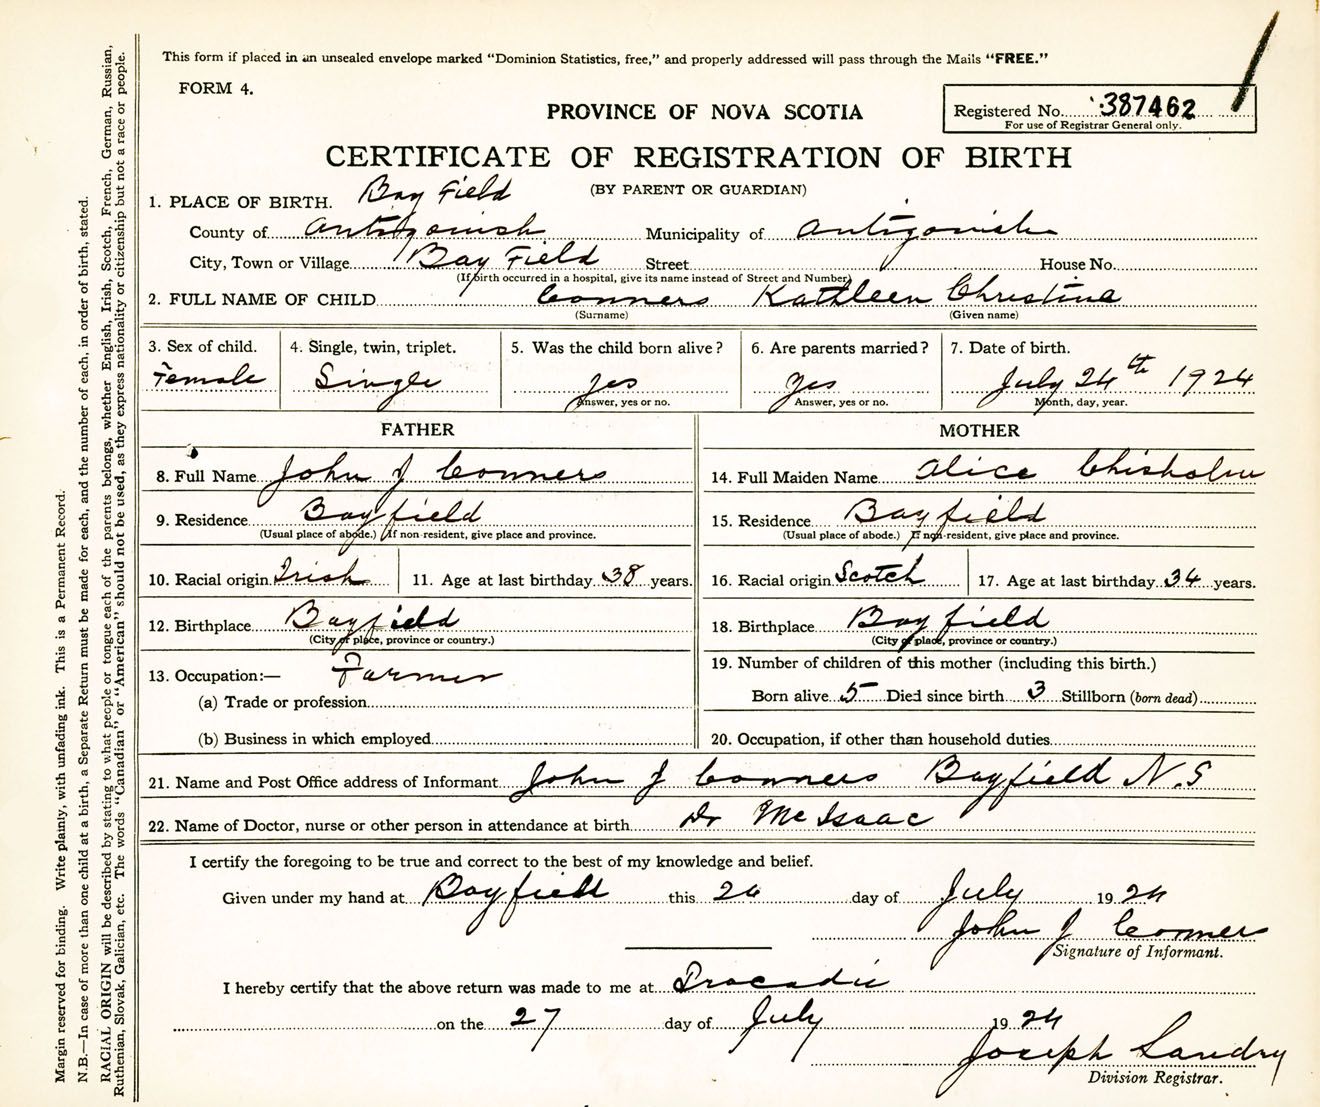 This form if placed in an unsealed envelope marked "Dominion Statistics, free," and properly addressed will pass through the Mails "FREE."
FORM 4.
PROVINCE OF NOVA SCOTIA
Registered No. 387462
For use of Registrar General only.
CERTIFICATE OF REGISTRATION OF BIRTH
(BY PARENT OR GUARDIAN)
1. PLACE OF BIRTH. Bay Field
County of Antigonish Municipality of Antigonish
City, Town or Village Bay Field Street House No.
(If birth occurred in a hospital, give its name instead of Street and Number)
2. FULL NAME OF CHILD Conners Kathleen Christina
(Surname) (Given name)
3. Sex of child. 4. Single, twin, triplet. 5. Was the child born alive? 6. Are parents married? 7. Date of birth.
Female Single yes yes July 24th 1924
Answer, yes or no. Answer, yes or no. Month, day, year.
FATHER MOTHER
8. Full Name John J Conners 14. Full Maiden Name Alice Chisholm
9. Residence Bayfield 15. Residence Bayfield
(Usual place of abode.) If non-resident, give place and province. (Usual place of abode.) If non-resident, give place and province.
10. Racial origin Irish 11. Age at last birthday 38 years. 16. Racial origin Scotch 17. Age at last birthday 34 years.
12. Birthplace Bayfield 18. Birthplace Bayfield
(City or place, province or country.) (City or place, province or country.)
13. Occupation:— Farmer 19. Number of children of this mother (including this birth.)
(a) Trade or profession Born alive 5 Died since birth 3 Stillborn (born dead)
(b) Business in which employed 20. Occupation, if other than household duties
21. Name and Post Office address of Informant John J Conners Bayfield N.S
22. Name of Doctor, nurse or other person in attendance at birth Dr McIsaac
I certify the foregoing to be true and correct to the best of my knowledge and belief.
Given under my hand at Bayfield this day of July 19 24
John J Conners
Signature of Informant.
I hereby certify that the above return was made to me at Tracadie
on the 27 day of July 19 24
Joseph Landry
Division Registrar.
Margin reserved for binding. Write plainly, with unfading ink. This is a Permanent Record.
N.B.—In case of more than one child at a birth, a Separate Return must be made for each, and the number of each, in order of birth, stated.
RACIAL ORIGIN will be described by stating to what people or tongue each of the parents belongs, whether English, Irish, Scotch, French, German, Russian,
Ruthenian, Slovak, Galician, etc. The words "Canadian" or "American" should not be used, as they express nationality or citizenship but not a race or people.